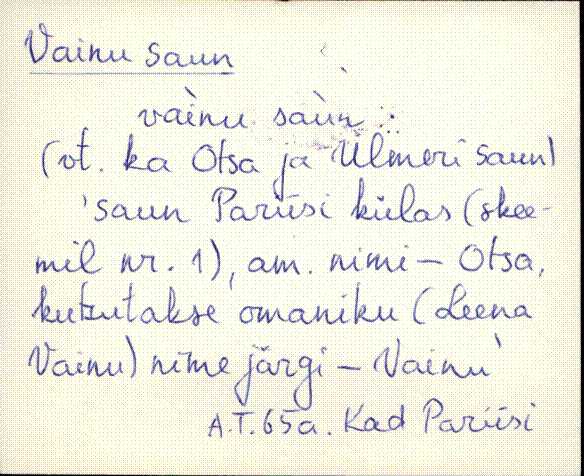 Vainu saun
vàinu saùn :
(vt. ka Otsa ja Ülmeri saun)
'saun Pariisi külas (skee-
mil nr. 1), am. nimi – Otsa,
kutsutakse omaniku (Leena
Vainu) nime järgi – Vainu'
A.T. 65a. Kad Pariisi